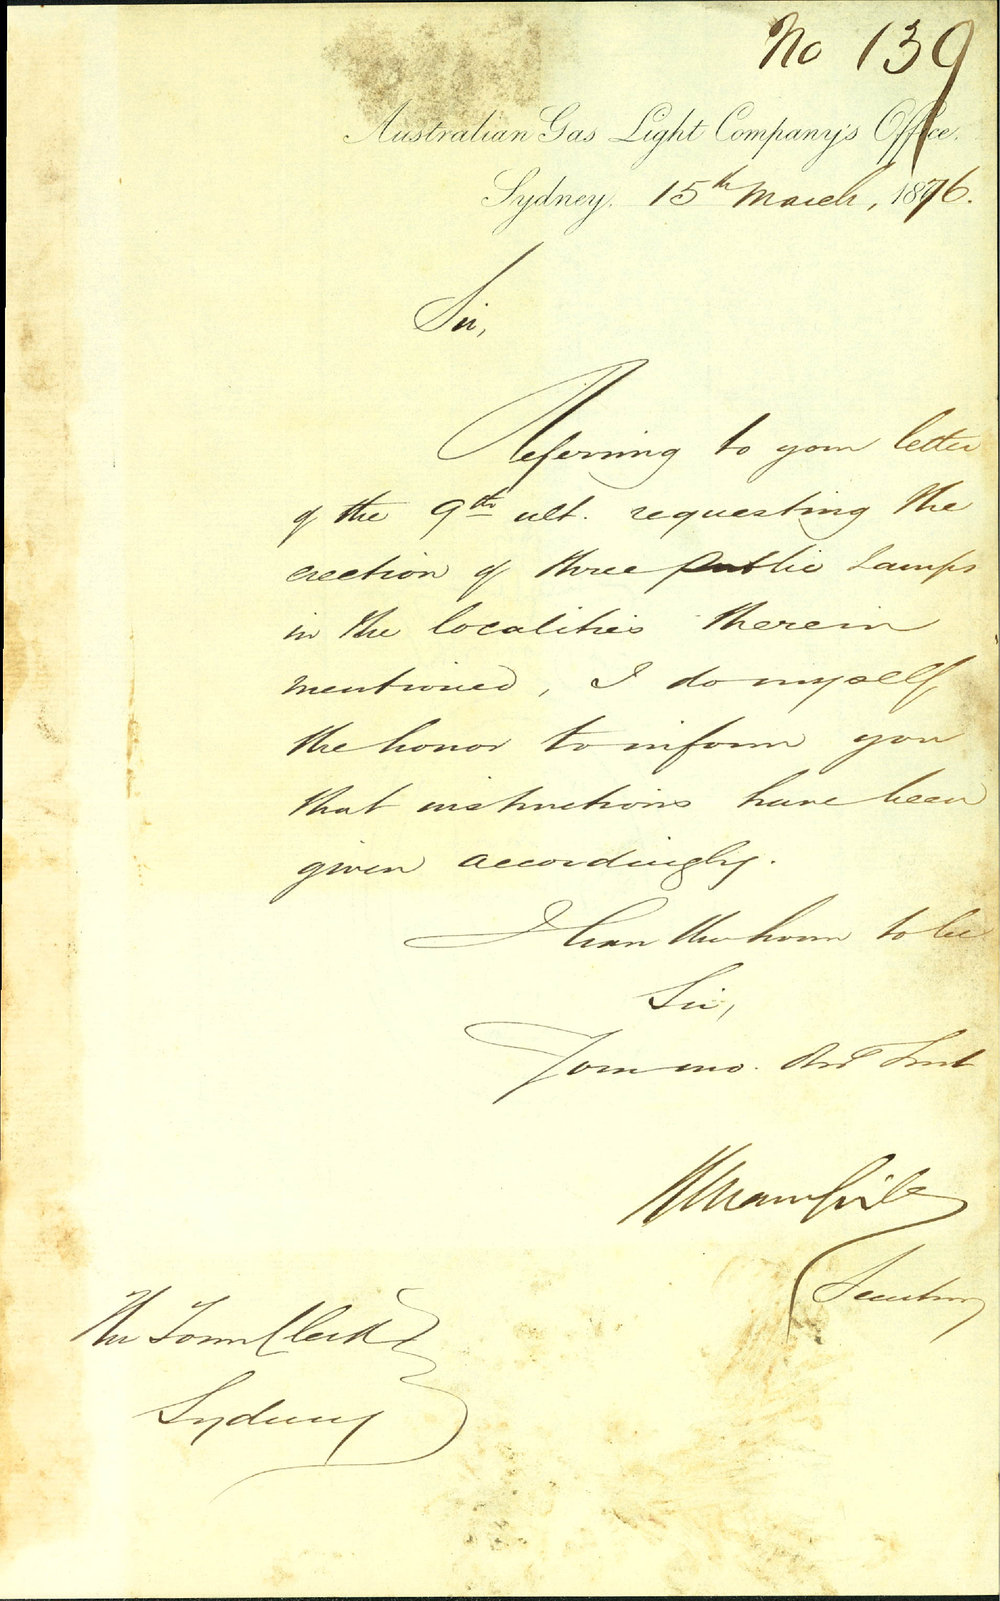 No 139
Australian Gas Light Company's Office.
Sydney. 15th March, 1876.
Sir,
Referring to your letter
of the 9th ult. requesting the
erection of three public Lamps
in the localities therein
mentioned, I do myself
the honor to inform you
that instructions have been
given accordingly.
I have the honor to be
Sir,
Your mo. Obt Servt
Secretary
The Town Clerk
Sydney